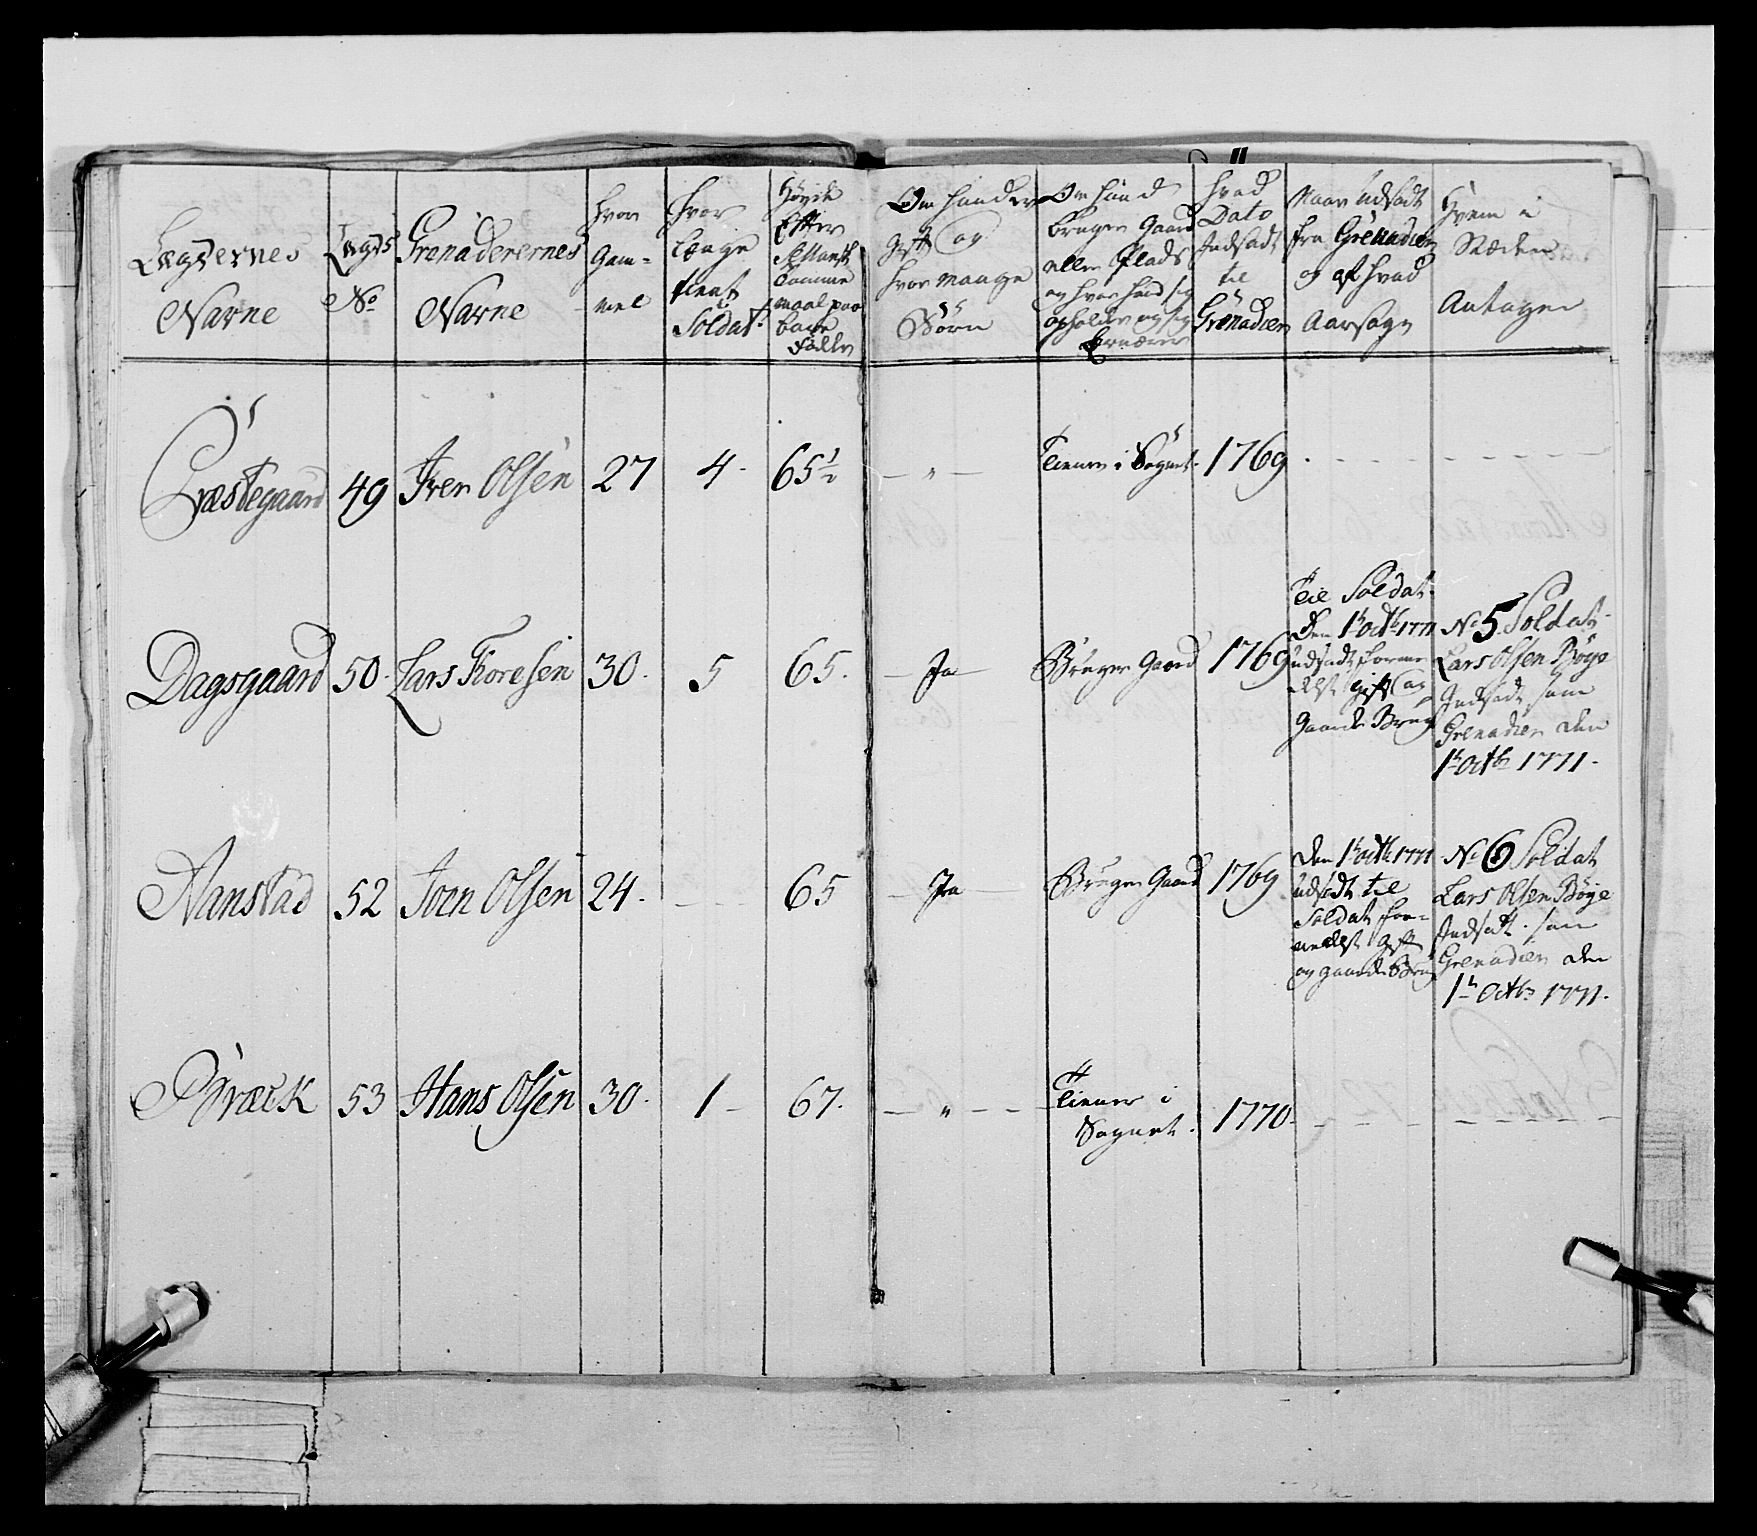 Lægdernes
Navne
Lægds
No
Grenaderernes
Navne
Hvor
Gam-
mel
Hvor
længe
tient
Soldat
Høyde
Efter
Tomme
maal paa
bare
Om hand er
gift og
hvor mange
Børn
Om hand
bruger Gaard
eller Plads
og hvor hand sig
opholder og sig
Ernærer
Hvad
Dato
Indsadt
til
Grenadeer
Naar udsadt
fra Grenadeer
og af hvad
Aarsage
Hvem i
Stæden
Antagen
Præstegaard 49 Iver Olsen 27 4 65½ — " — Tiener i Sognet 1769
Dagsgaard 50 Lars Toresen 30 5 65 — Ja — Bruger Gaard 1769
Til Soldat
den 1te Octbr 1771
udsadt forme-
delst gift og
Gaarde Brug
No 5 Soldat
Lars Olsen Bøye
Indsadt som
Grenadeer den
1te Octbr 1771
Aanstad 52 Joen Olsen 24 — 65 — Ja — Bruger Gaard 1769
den 1te Octbr 1771
udsadt til
Soldat for-
medelst gift
og gaarde Brug
No 6 Soldat
Lars Olsen Bøye
Indsatt som
Grenadeer den
1te Octbr 1771
Bræck 53 Hans Olsen 30 1 67 — " — Tiener i
Sognet 1770